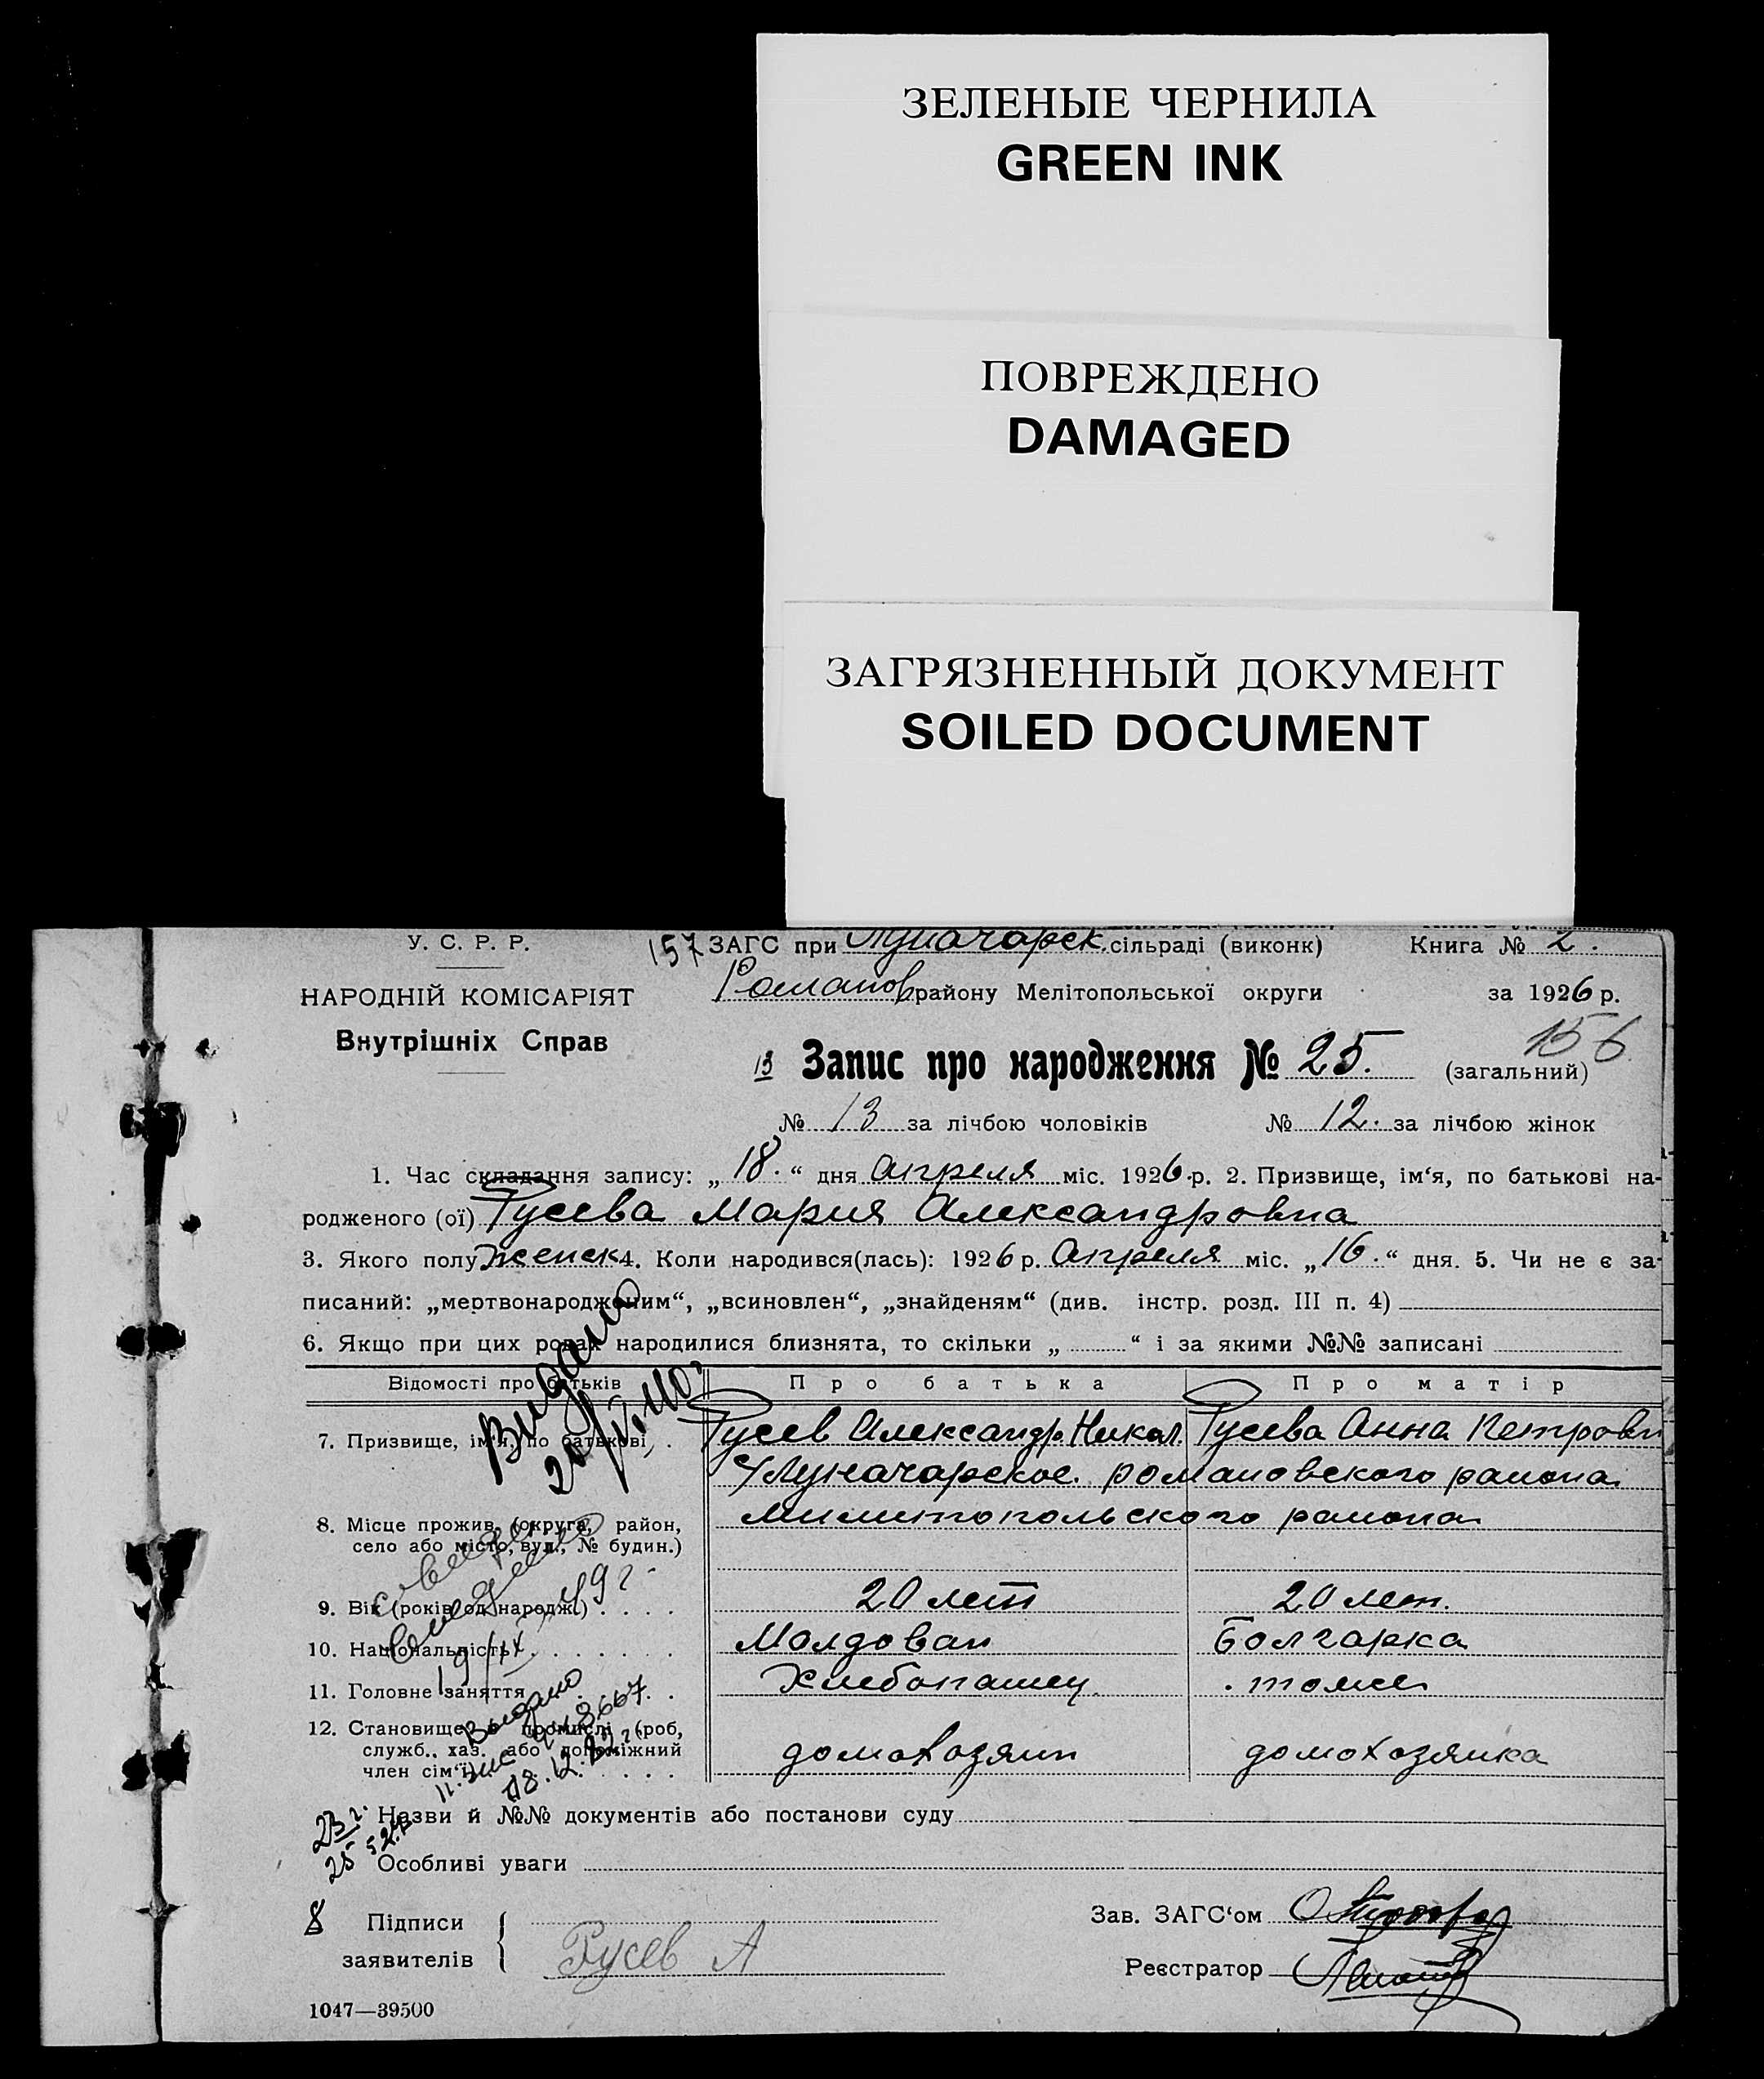 ЗЕЛЕНЫЕ ЧЕРНИЛА
GREEN INK
ПОВРЕЖДЕНО
DAMAGED
ЗАГРЯЗНЕННЫЙ ДОКУМЕНТ
SOILED DOCUMENT
У. С. Р. Р.
157 ЗАГС при Луначарск. сільраді (виконк) Книга № 2.
НАРОДНІЙ КОМІСАРІЯТ
Романов району Мелітопольської округи за 1926 р.
Внутрішніх Справ
156
13 Запис про народження № 25. (загальний)
№ 13 за лічбою чоловіків № 12. за лічбою жінок
1. Час складання запису: „18.“ дня апреля міс. 1926 р. 2. Призвище, ім‘я, по батькові на-
родженого (ої) Русева Мария Александровна
3. Якого полу женск 4. Коли народився(лась): 1926 р. Апреля міс. „16.“ дня. 5. Чи не є за-
писаний: „мертвонародженим“, „всиновлен“, „знайденям“ (див. інстр. розд. III п. 4)
6. Якщо при цих родах народилися близнята, то скільки „ “ і за якими №№ записані
Відомості про батьків Про батька Про матір
7. Призвище, ім‘я, по батькові Русев Александр. Никол. Русева Анна Петровн
Луначарское. романовского района
8. Місце прожив. (округа, район, Милитопольского района
село або місто, вул., № будин.)
9. Вік (років од народж.) 20 лет 20 лет.
10. Національність Молдован Болгарка
11. Головне заняття Хлебопашец. тоже
12. Становище в промислі (роб,
служб., хаз. або допоміжний домохозяин домохозяйка
член сім‘ї)
Видано
Выдано
18.12.82г.
23 г.
25
Назви й №№ документів або постанови суду
Особливі уваги
8 Підписи
заявителів
Русев А
Зав. ЗАГС‘ом
Реєстратор
1047—39500